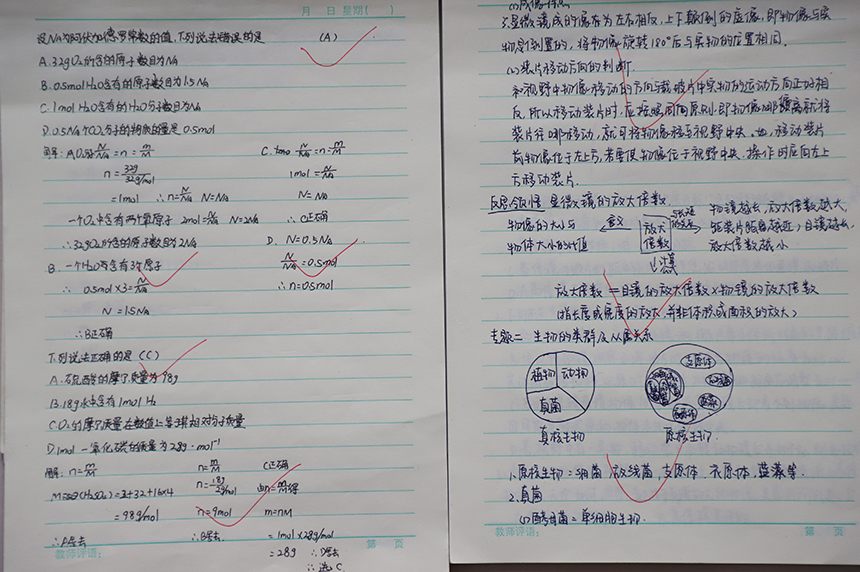 月 日 星期( )
设NA为阿伏加德罗常数的值,下列说法错误的是 (A)
A.32gO₂所含的原子数目为NA
B.0.5molH₂O含有的原子数目为1.5NA
C.1molH₂O含有的H₂O分子数目为NA
D.0.5NA个O₂分子的物质的量是0.5mol
解:A. n=m/M
n=32g/32g/mol
=1mol ∴n=N/NA N=NA
一个O₂中含有两个氧原子 2mol=N/NA N=2NA
∴32gO₂所含的原子数目为2NA
B. 一个H₂O含有3个原子
∴ 0.5mol×3=N/NA
N=1.5NA
∴B正确
C. N/NA=n=m/M
1mol=N/NA
N=NA
∴C正确
D. N=0.5NA
N/NA=0.5mol
∴n=0.5mol
下列说法正确的是(C)
A.硫酸的摩尔质量为98g
B.18g水中含有1molH₂
C.O₂的摩尔质量在数值上等于其相对分子质量
D.1mol一氧化碳的质量为28g·mol⁻¹
解:n=m/M
(H₂SO₄)=2+32+16×4
=98g/mol
∴A错
n=m/M
n=18g/2g/mol
n=9mol
∴B错
C正确
由n=m/M得
m=nM
=1mol×28g/mol
=28g ∴D错
∴选C
教师评语: 第 页
3.显微镜成的像为左右相反,上下颠倒的虚像,即物像与实
物是倒置的,将物像旋转180°后与实物的位置相同.
装片移动方向的判断.
和视野中物像移动的方向与载玻片中实物的运动方向正好相
反,所以移动装片时,应按照同向原则,即物像哪偏就将
装片往哪移动,就可将物像移至视野中央.如,移动装片
前物像位于左上方,若要使物像位于视野中央,操作时应向左上
方移动装片.
反思领悟 显微镜的放大倍数
物像的大小与
物体大小的比值
意义
放大
倍数
与长短
的关系
物镜越长,放大倍数越大,
距装片距离越近;目镜越长,
放大倍数越小
计算
放大倍数=目镜的放大倍数×物镜的放大倍数
(指长度或宽度的放大,并非体积或面积的放大)
专题二 生物的类群及从属关系
植物 动物
真菌
真核生物
支原体
蓝藻
原核生物.
1.原核生物:细菌,放线菌,支原体,衣原体,蓝藻等.
2.真菌
(1)酵母菌=单细胞生物.
教师评语: 第 页